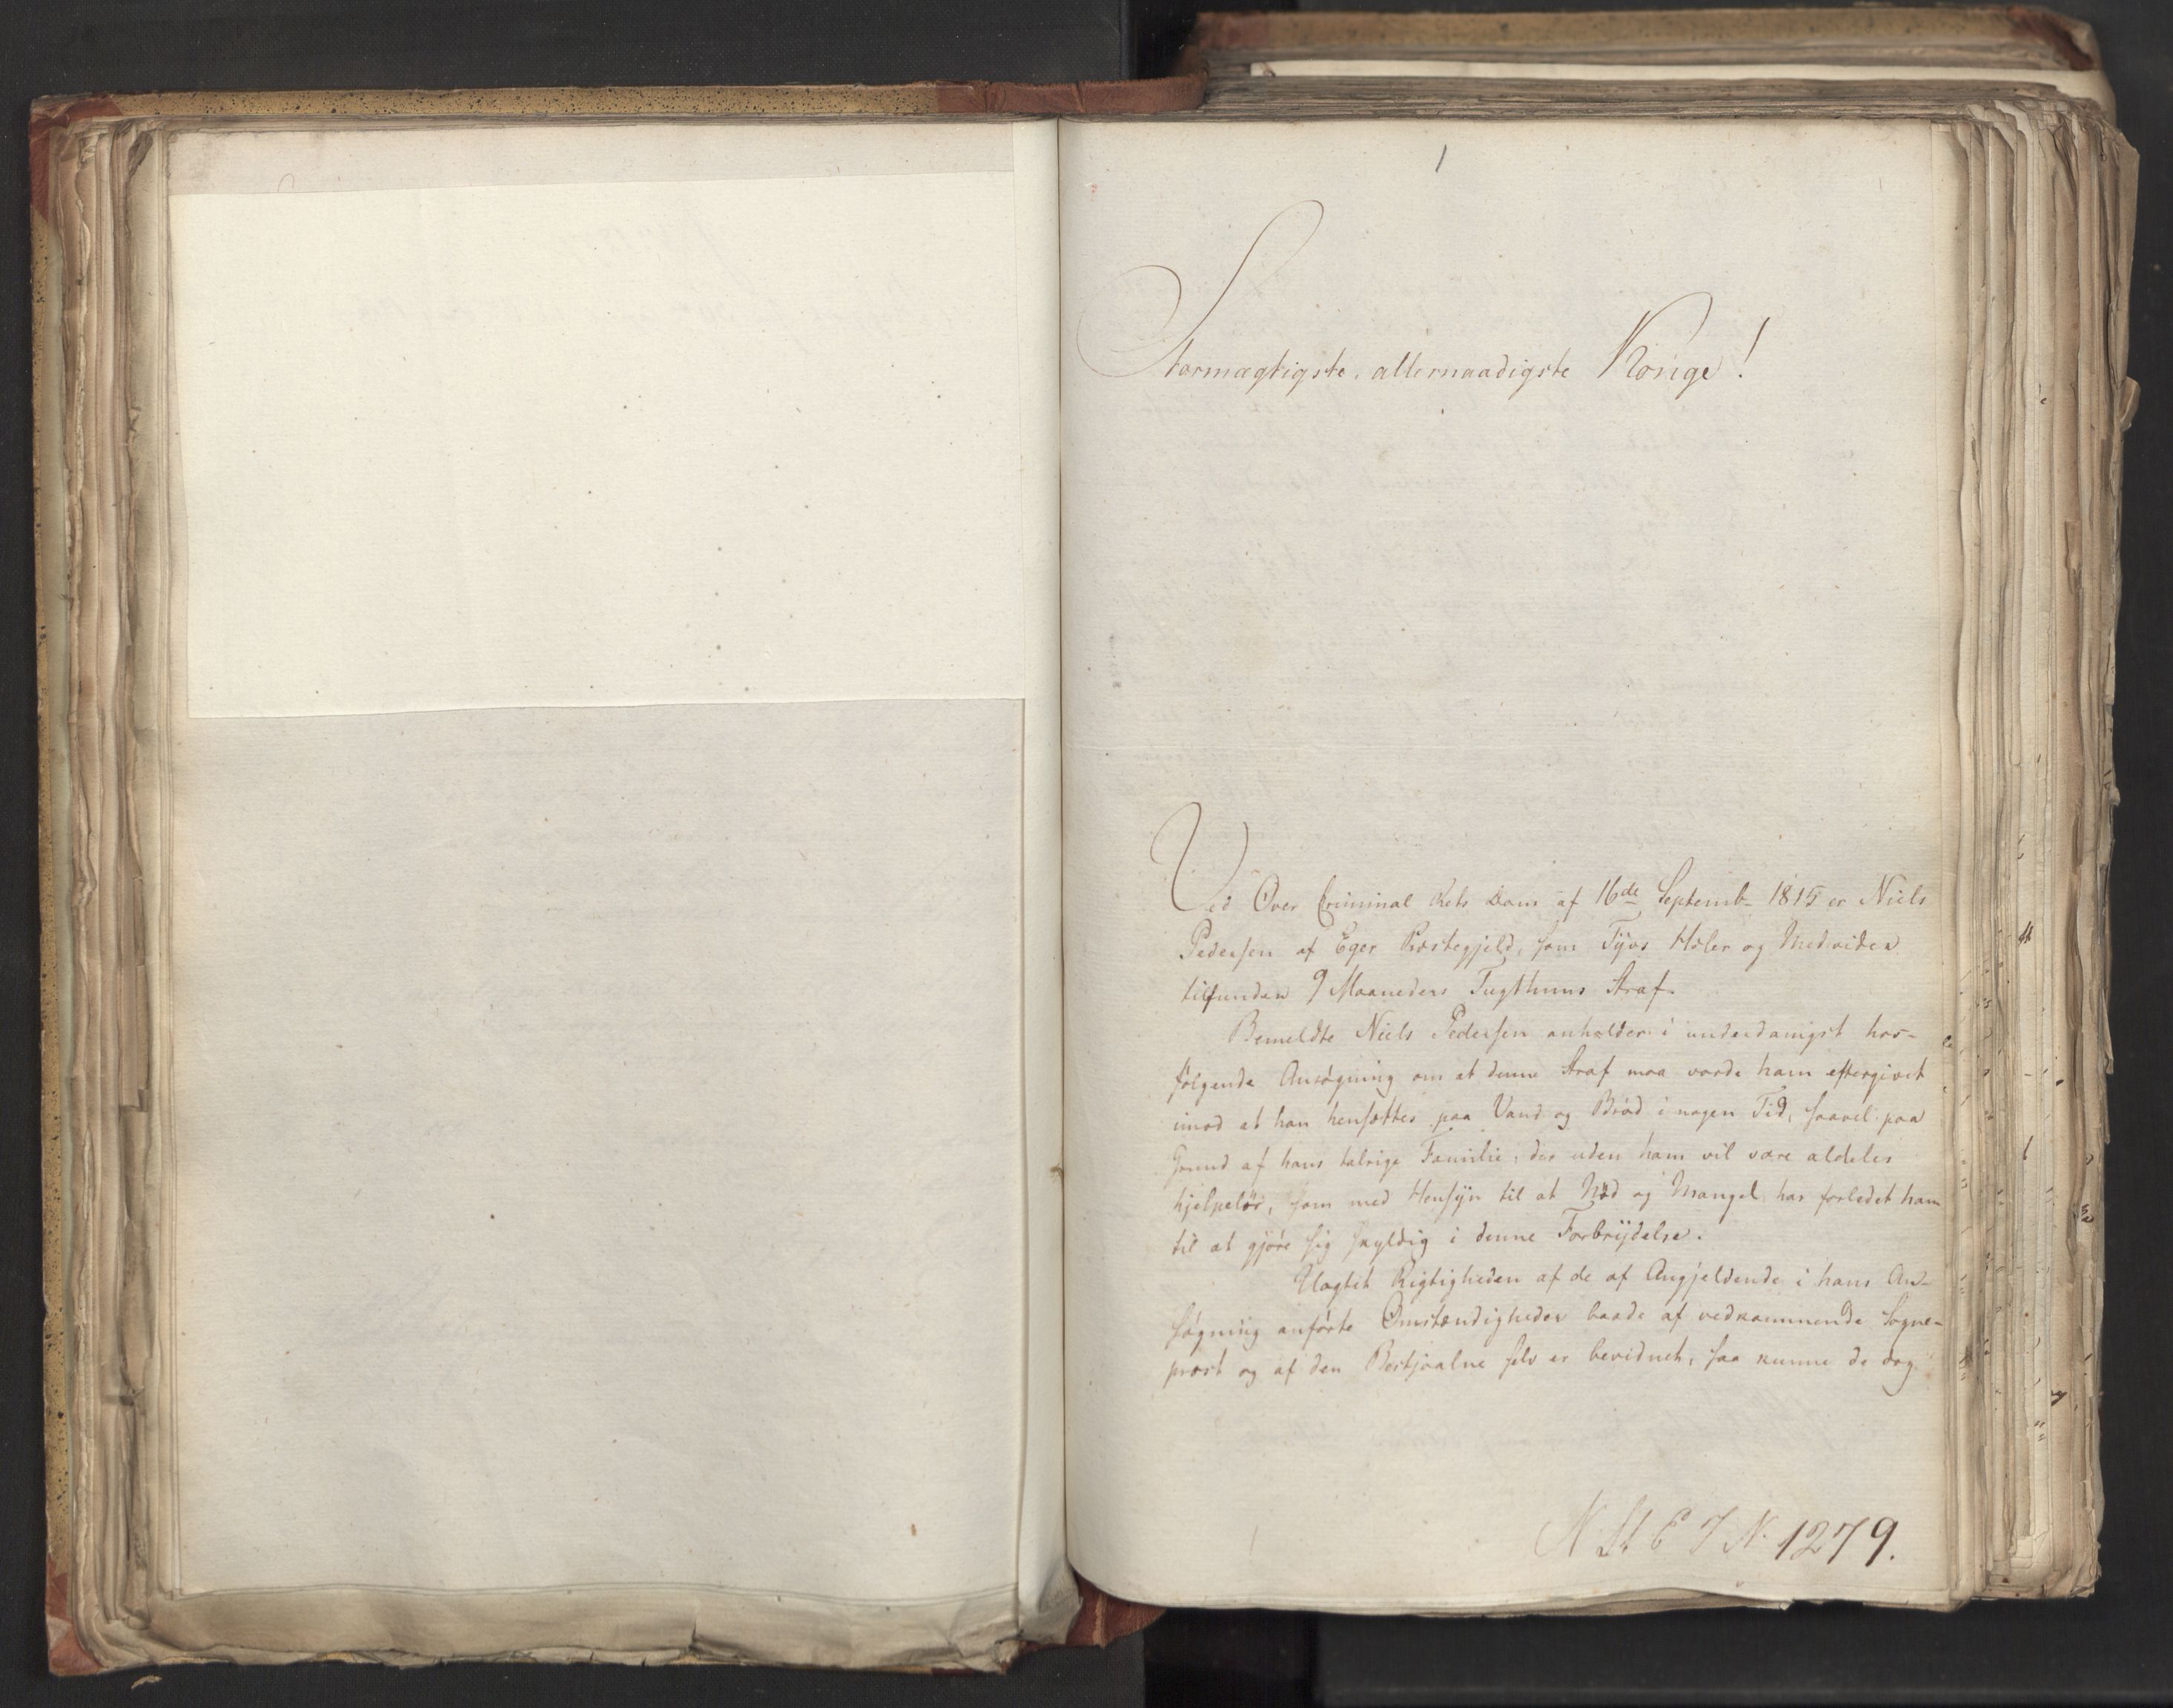 1
Stormægtigste, allernaadigste Konge!
Ved Over Criminal Rets Dom af 16de Septemb- 1815 er Niels
Pedersen af Eger Præstegjeld, som Tÿvs Hæler og Medvider
tilfunden 9 Maaneders Tugthuus Straf.
Bemeldte Niels Pedersen anholder i underdanigst hos-
følgende Ansøgning om at denne Straf maa vorde ham eftergivet
imod at han hensættes paa Vand og Brød i nogen Tid, saavel paa
Grund af hans talrige Familie, der uden ham vil være aldeles
hjelpeløs, som med Hensÿn til at Nød og Mangel har forledet ham
til at gjøre sig skyldig i denne Forbrÿdelse.
Uagtet Rigtigheden af de af Angjeldende i hans An-
søgning anførte Omstændigheder baade af vedkommende Sogne-
præst og af den Bestjaalne selv er bevidnet, saa kunne de dog
N. St. E J N. 1279.